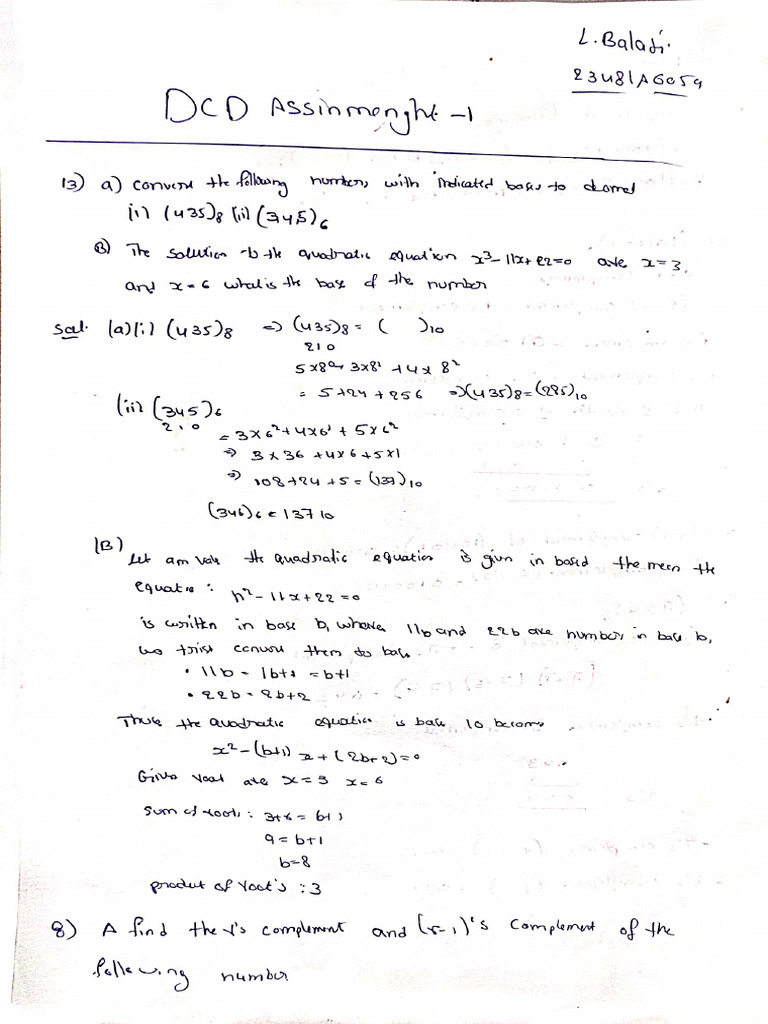 L. Balaji.
23481A6059
DCD Assinmenght -1
13) a) convert the following numbers with indicated bases to decimal
(i) (435)8 (ii) (345)6
(B) The solution to the quadratic equation x³-11x+22=0 are x=3,
and x=6 what is the base of the number
Sol. (a)(i) (435)8 => (435)8 = ( )10
210
5x8º+ 3x8¹ +4x 8²
= 5+24+256 =>(435)8=(285)10
(ii) (345)6
2,0
= 3x6²+4x6¹+5x6²
=> 3x36 +4x6+5x1
=> 108+24+5=(137)10
(346)6 = 13710
(B)
Let the quadratic equation is given in based the mean the
equation : n²-11x+22=0
is written in base b, where 11b and 22b are number in base b,
we first convert them to base.
• 11b = 1b+1 = b+1
• 22b = 2b+2
Thus the quadratic equation is base 10 becoms
x²-(b+1)x+(2b+2)=0
Given root are x=3 x=6
Sum of roots : 3+6 = b+1
9 = b+1
b=8
product of root's : 3
8) A find the r's complement and (r-1)'s complement of the
following number